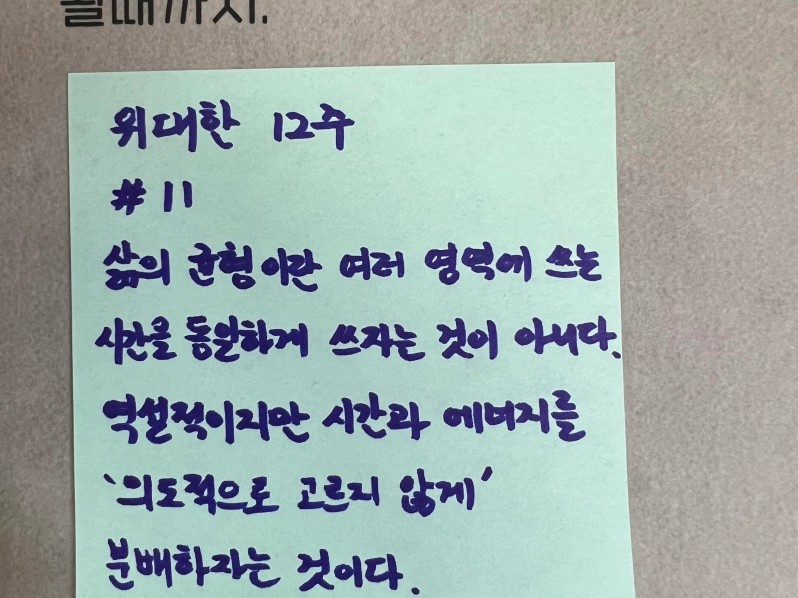 될때까지.
위대한 12주
#11
삶의 균형이란 여러 영역에 쓰는
시간을 동일하게 쓰자는 것이 아니다.
역설적이지만 시간과 에너지를
'의도적으로 고르지 않게'
분배하자는 것이다.